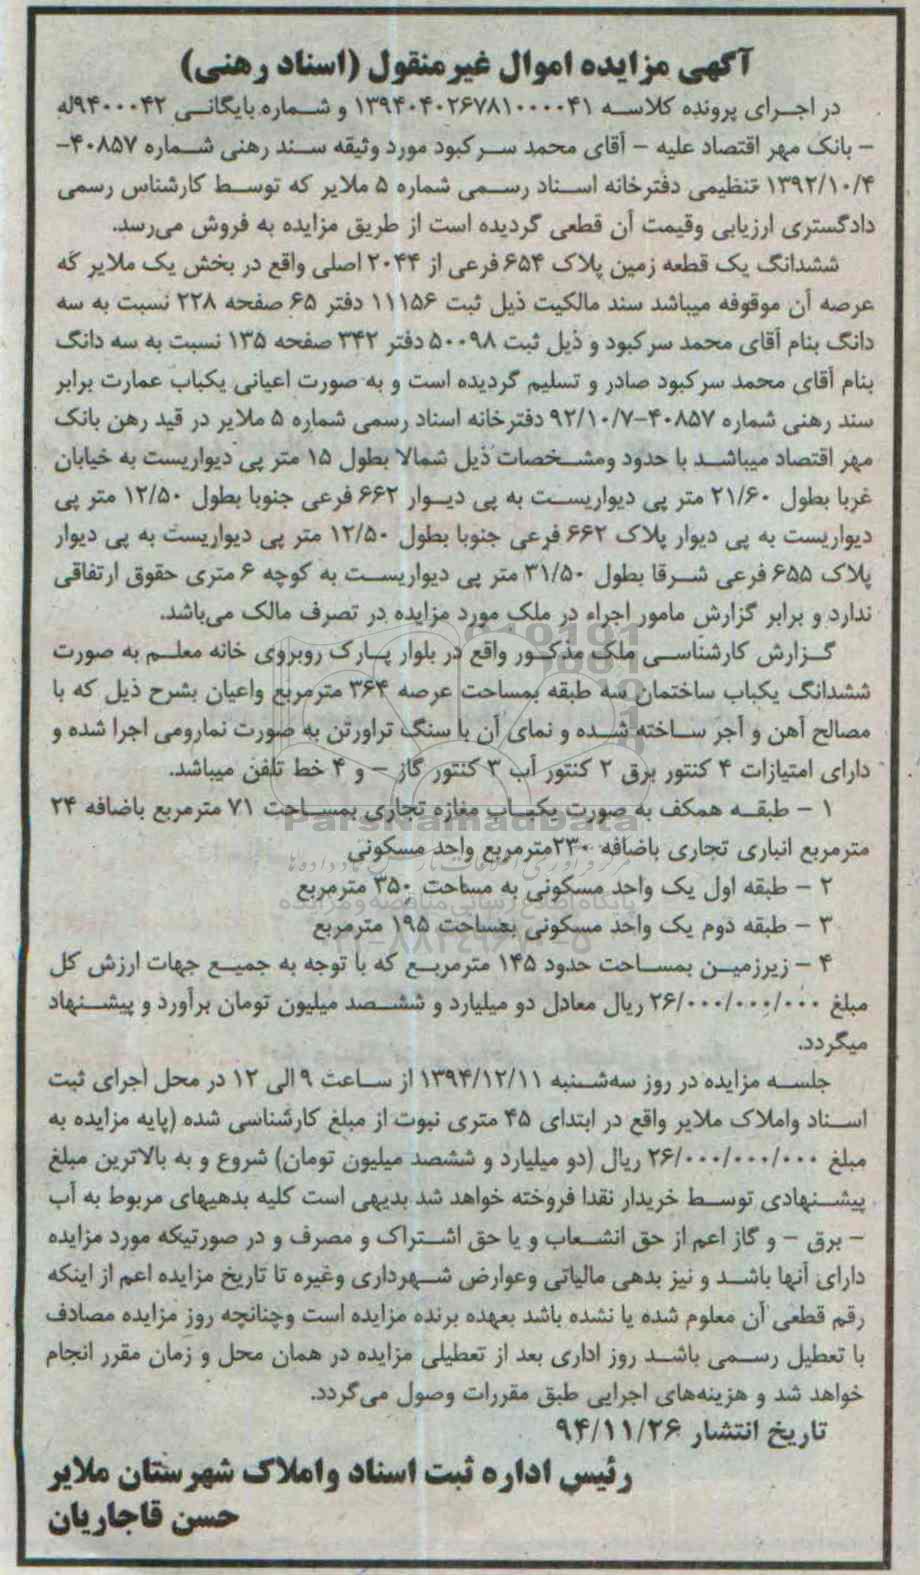 آگهی مزایده اموال غیرمنقول (اسناد رهنی)
در اجرای پرونده کلاسه ۱۳۹۴۰۴۰۲۶۷۸۱۰۰۰۰۴۱ و شماره بایگانی ۹۴۰۰۰۴۲له
– بانک مهر اقتصاد علیه – آقای محمد سرکبود مورد وثیقه سند رهنی شماره ۴۰۸۵۷–
۱۳۹۲/۱۰/۴ تنظیمی دفترخانه اسناد رسمی شماره ۵ ملایر که توسط کارشناس رسمی
دادگستری ارزیابی وقیمت آن قطعی گردیده است از طریق مزایده به فروش می‌رسد.
ششدانگ یک قطعه زمین پلاک ۶۵۴ فرعی از ۲۰۴۴ اصلی واقع در بخش یک ملایر که
عرصه آن موقوفه میباشد سند مالکیت ذیل ثبت ۱۱۱۵۶ دفتر ۶۵ صفحه ۲۲۸ نسبت به سه
دانگ بنام آقای محمد سرکبود و ذیل ثبت ۵۰۰۹۸ دفتر ۳۴۲ صفحه ۱۳۵ نسبت به سه دانگ
بنام آقای محمد سرکبود صادر و تسلیم گردیده است و به صورت اعیانی یکباب عمارت برابر
سند رهنی شماره ۴۰۸۵۷–۹۲/۱۰/۷ دفترخانه اسناد رسمی شماره ۵ ملایر در قید رهن بانک
مهر اقتصاد میباشد با حدود ومشخصات ذیل شمالا بطول ۱۵ متر پی دیواریست به خیابان
غربا بطول ۲۱/۶۰ متر پی دیواریست به پی دیوار ۶۶۲ فرعی جنوبا بطول ۱۲/۵۰ متر پی
دیواریست به پی دیوار پلاک ۶۶۲ فرعی جنوبا بطول ۱۲/۵۰ متر پی دیواریست به پی دیوار
پلاک ۶۵۵ فرعی شرقا بطول ۳۱/۵۰ متر پی دیواریست به کوچه ۶ متری حقوق ارتفاقی
ندارد و برابر گزارش مامور اجراء در ملک مورد مزایده در تصرف مالک می‌باشد.
گزارش کارشناسی ملک مذکور واقع در بلوار پارک روبروی خانه معلم به صورت
ششدانگ یکباب ساختمان سه طبقه بمساحت عرصه ۳۶۴ مترمربع واعیان بشرح ذیل که با
مصالح آهن و آجر ساخته شده و نمای آن با سنگ تراورتن به صورت نمارومی اجرا شده و
دارای امتیازات ۴ کنتور برق ۲ کنتور آب ۳ کنتور گاز – و ۴ خط تلفن میباشد.
۱ – طبقه همکف به صورت یکباب مغازه تجاری بمساحت ۷۱ مترمربع باضافه ۲۴
مترمربع انباری تجاری باضافه ۲۳۰مترمربع واحد مسکونی
۲ – طبقه اول یک واحد مسکونی به مساحت ۳۵۰ مترمربع
۳ – طبقه دوم یک واحد مسکونی بمساحت ۱۹۵ مترمربع
۴ – زیرزمین بمساحت حدود ۱۴۵ مترمربع که با توجه به جمیع جهات ارزش کل
مبلغ ۲۶/۰۰۰/۰۰۰/۰۰۰ ریال معادل دو میلیارد و ششصد میلیون تومان برآورد و پیشنهاد
میگردد.
جلسه مزایده در روز سه‌شنبه ۱۳۹۴/۱۲/۱۱ از ساعت ۹ الی ۱۲ در محل اجرای ثبت
اسناد واملاک ملایر واقع در ابتدای ۴۵ متری نبوت از مبلغ کارشناسی شده (پایه مزایده به
مبلغ ۲۶/۰۰۰/۰۰۰/۰۰۰ ریال (دو میلیارد و ششصد میلیون تومان) شروع و به بالاترین مبلغ
پیشنهادی توسط خریدار نقدا فروخته خواهد شد بدیهی است کلیه بدهیهای مربوط به آب
– برق – و گاز اعم از حق انشعاب و یا حق اشتراک و مصرف و در صورتیکه مورد مزایده
دارای آنها باشد و نیز بدهی مالیاتی وعوارض شهرداری وغیره تا تاریخ مزایده اعم از اینکه
رقم قطعی آن معلوم شده یا نشده باشد بعهده برنده مزایده است وچنانچه روز مزایده مصادف
با تعطیل رسمی باشد روز اداری بعد از تعطیلی مزایده در همان محل و زمان مقرر انجام
خواهد شد و هزینه‌های اجرایی طبق مقررات وصول می‌گردد.
تاریخ انتشار ۹۴/۱۱/۲۶
رئیس اداره ثبت اسناد واملاک شهرستان ملایر
حسن قاجاریان
ParsNamadData
پایگاه اطلاع رسانی مناقصه و مزایده